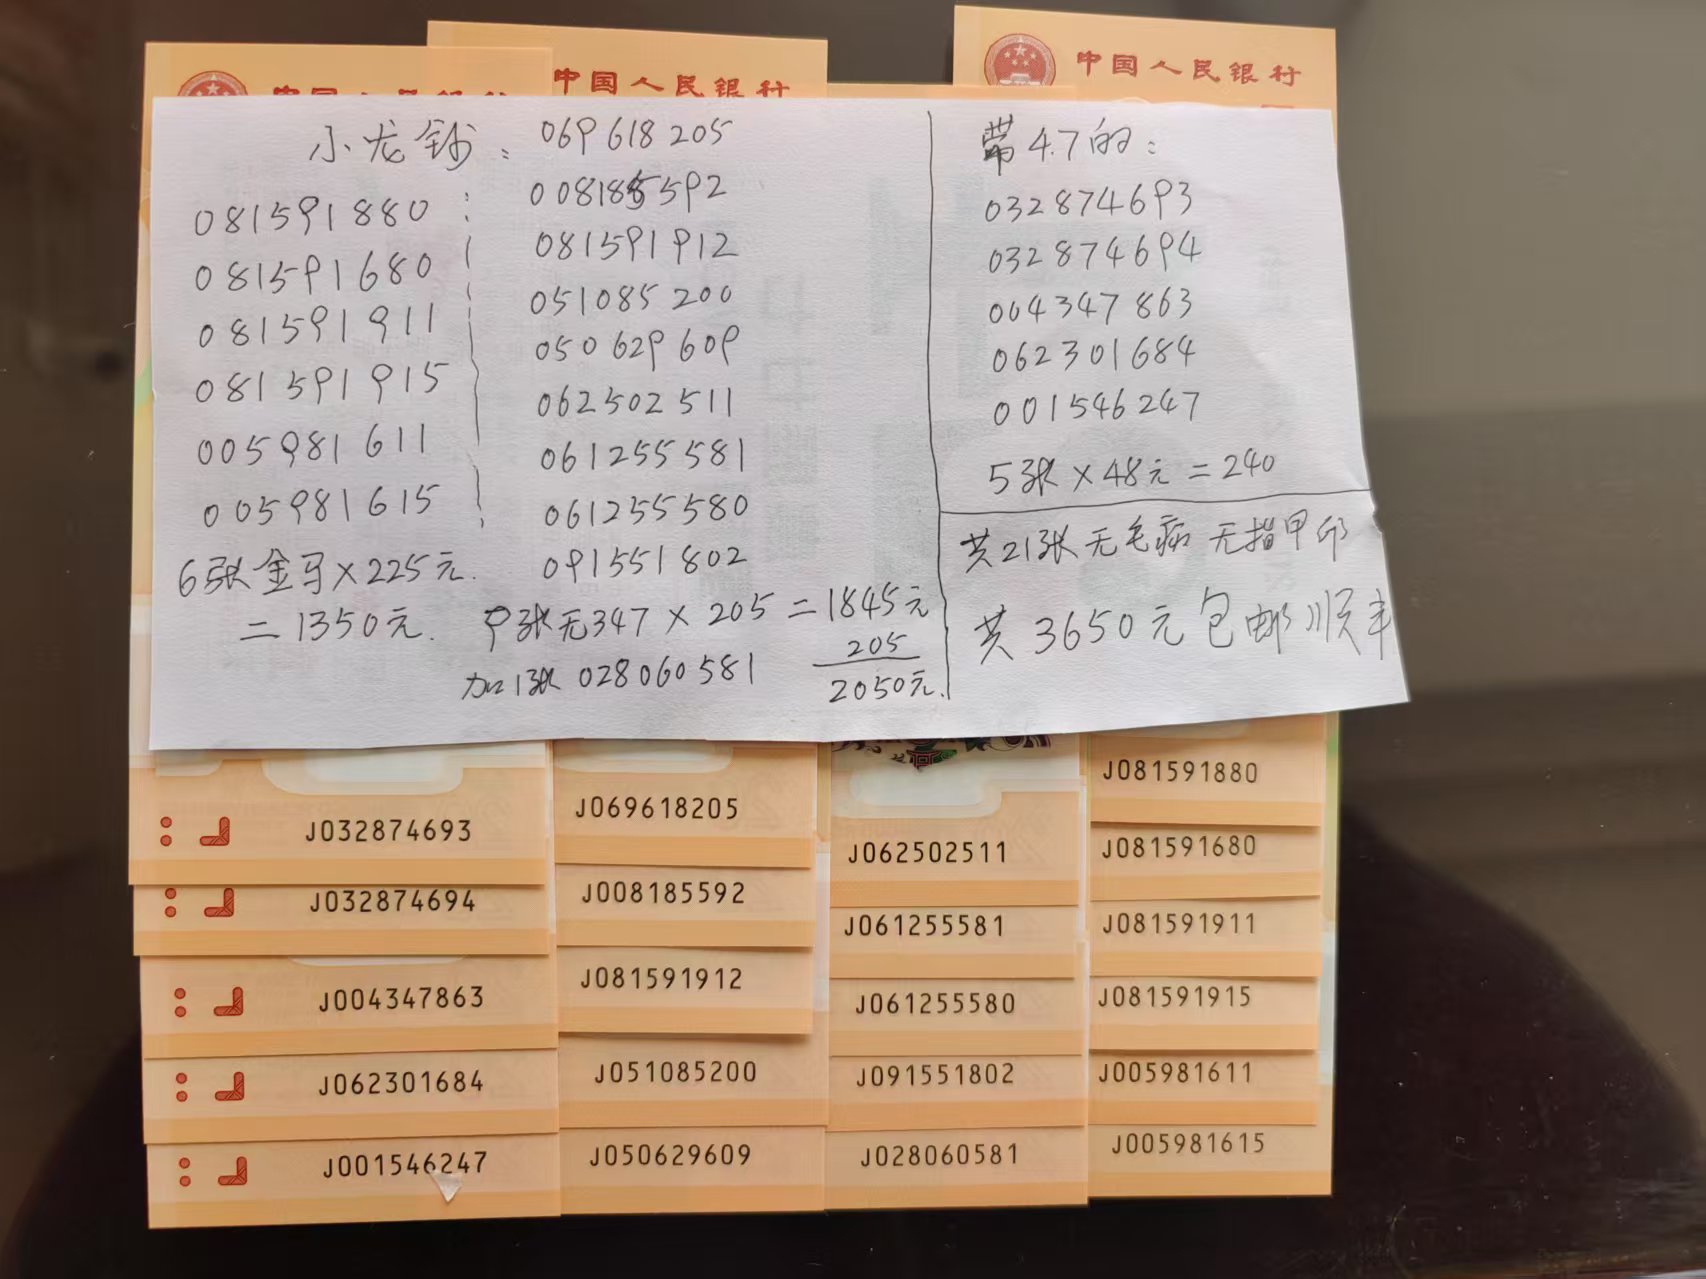 中国人民银行
中国人民银行
中国人民银行
小龙钞:
081591880
081591680
081591911
081591915
005981611
005981615
6张金马×225元
=1350元.
069618205
008185592
081591912
051085200
050629609
062502511
061255581
061255580
091551802
9张无347×205=1845元
205
加1张 028060581
2050元.
带4.7的:
032874693
032874694
004347863
062301684
001546247
5张×48元=240
共21张无毛病 无指甲印
共3650元包邮顺丰
J032874693
J032874694
J004347863
J062301684
J001546247
J069618205
J008185592
J081591912
J051085200
J050629609
J062502511
J061255581
J061255580
J091551802
J028060581
J081591880
J081591680
J081591911
J081591915
J005981611
J005981615